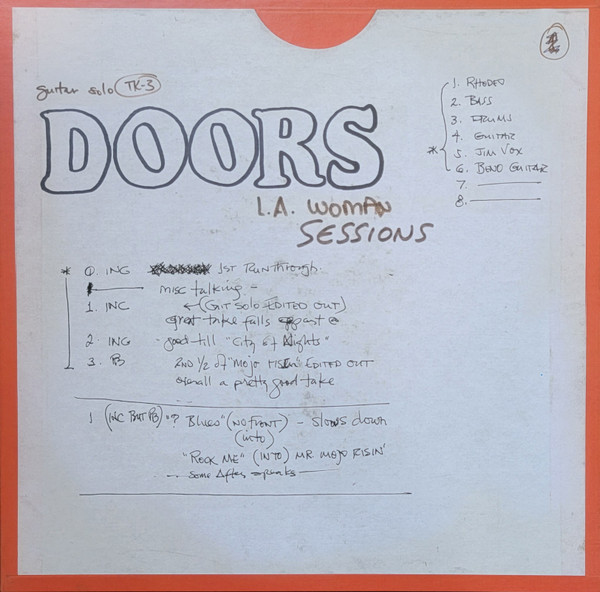 guitar solo TK-3
DOORS
L.A. WOMAN
SESSIONS
1. RHODES
2. BASS
3. DRUMS
4. GUITAR
* 5. JIM VOX
6. BEND GUITAR
7.
8.
* 0 ING 1ST RUN through.
misc talking -
1. INC ← (GIT SOLO EDITED OUT)
great take falls apart @
2. ING - good till "City of Nights"
3. PB 2ND 1/2 of "MOJO RISIN" EDITED OUT
overall a pretty good take
1 (INC BUT PB) "? Blues" (NO FRONT) - SLOWS down
(into)
"ROCK ME" (INTO) MR MOJO RISIN'
-- some After speaks